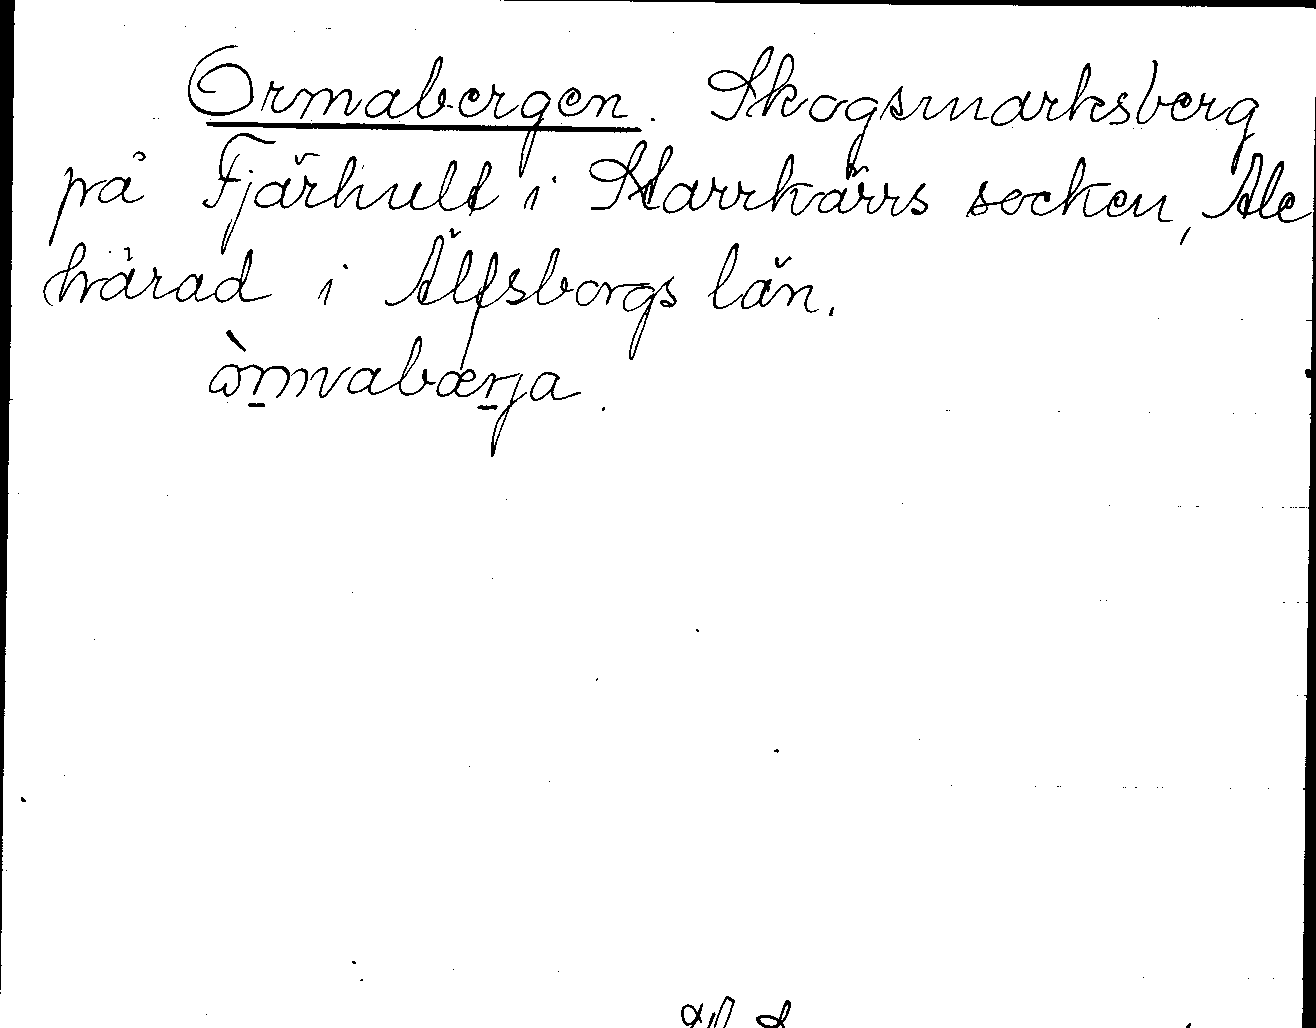 Ormabergen. Skogsmarksberg
på Fjärhult i Starrkärrs socken, Ale
härad i Älfsborgs län.
òrmvabærja.